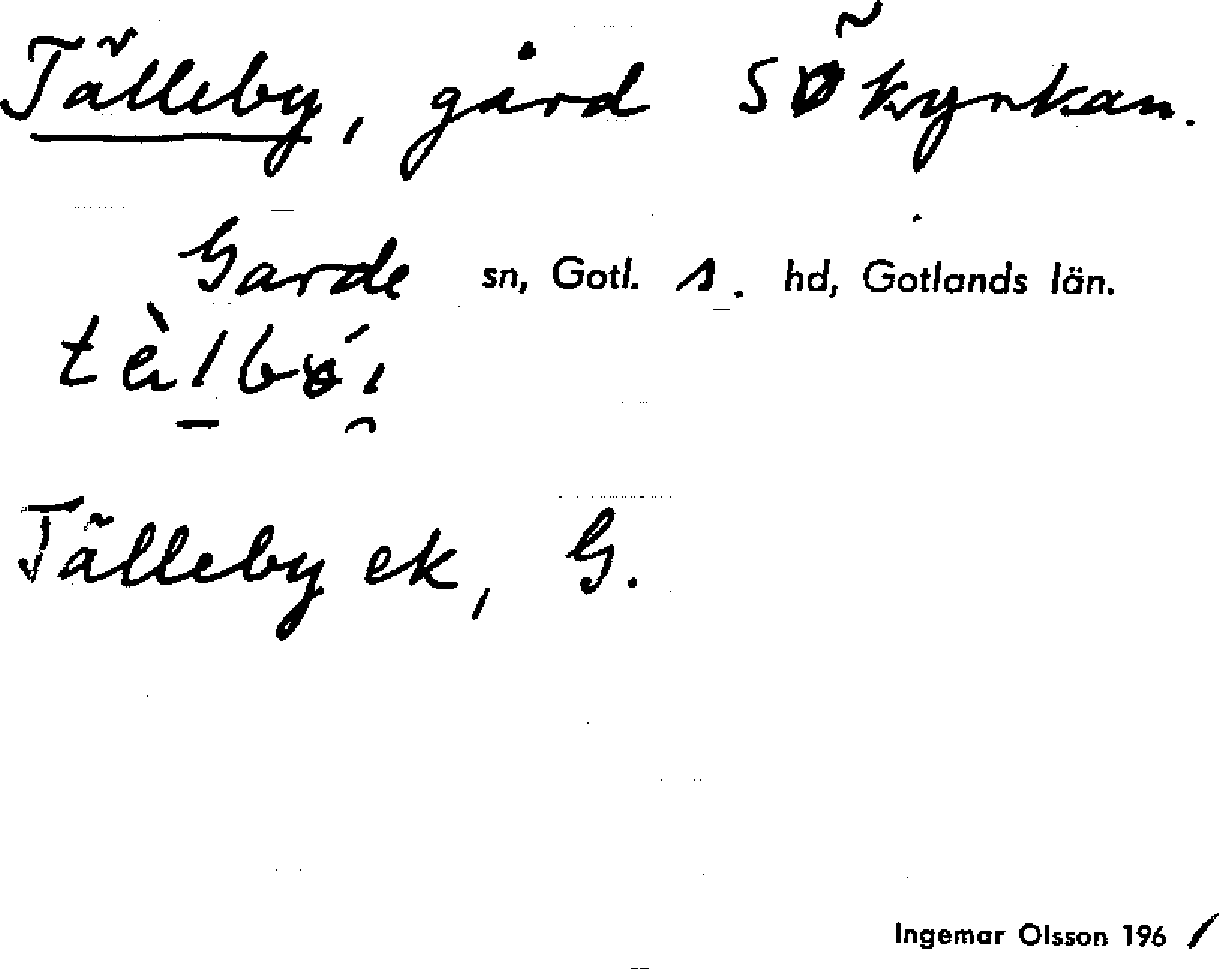 Tälleby, gård SÖ kyrkan.
Garde sn, Gotl. s. hd, Gotlands län.
Tälleby ek, G.
Ingemar Olsson 1961